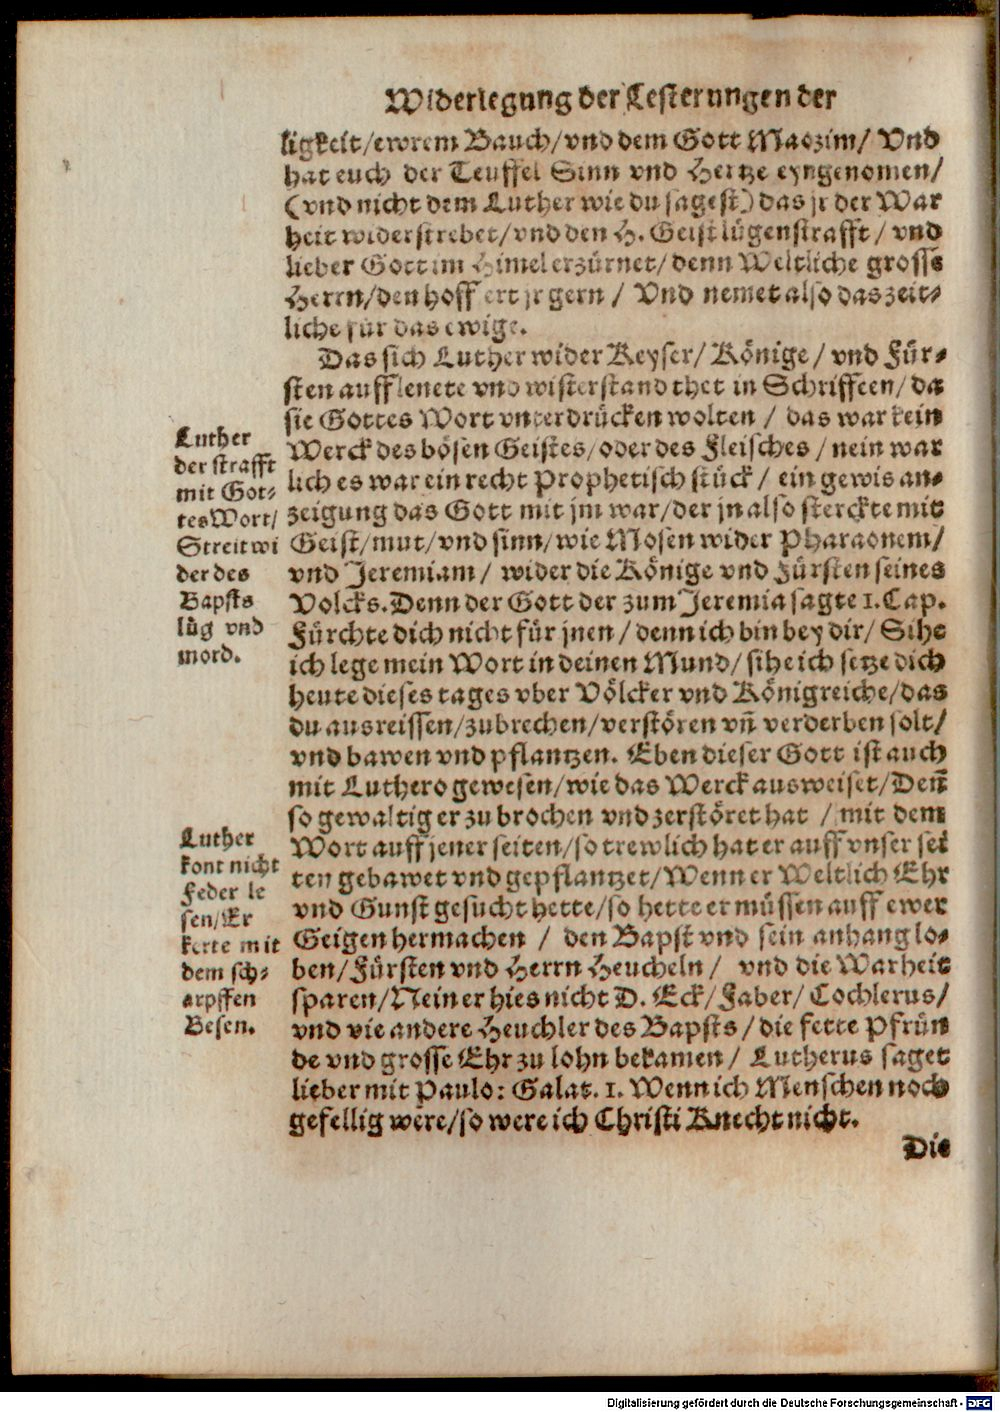 Widerlegung der Lesterungen der
ligkeit/ewrem Bauch/vnd dem Gott Maozim/ Vnd
hat euch der Teuffel Sinn vnd Hertze eyngenomen/
(vnd nicht dem Luther wie du sagest) das jr der War
heit widerstrebet/vnd den H. Geist lügenstrafft/ vnd
lieber Gott im Himel erzürnet/denn Weltliche grosse
Herrn/den hoffiert jr gern / Vnd nemet also das zeit-
liche für das ewige.
Das sich Luther wider Keyser/ Könige / vnd Für-
sten aufflenete vnd widerstand thet in Schrifften/ da
sie Gottes Wort vnterdrücken wolten / das war kein
Werck des bösen Geistes/oder des Fleisches / nein war
lich es war ein recht Prophetisch stück / ein gewis an-
zeigung das Gott mit jm war/der jn also sterckte mit
Geist/mut/vnd sinn/wie Mosen wider Pharaonem/
vnd Jeremiam / wider die Könige vnd Fürsten seines
Volcks. Denn der Gott der zum Jeremia sagte 1. Cap.
Fürchte dich nicht für jnen / denn ich bin bey dir/ Sihe
ich lege mein Wort in deinen Mund/ sihe ich setze dich
heute dieses tages vber Völcker vnd Königreiche/das
du ausreissen/zubrechen/verstören vñ verderben solt/
vnd bawen vnd pflantzen. Eben dieser Gott ist auch
mit Luthero gewesen/wie das Werck ausweiset/Deñ
so gewaltig er zubrochen vnd zerstöret hat / mit dem
Wort auff jener seiten/so trewlich hat er auff vnser sei
ten gebawet vnd gepflantzet/Wenn er Weltlich Ehr
vnd Gunst gesucht hette/so hette er müssen auff ewer
Geigen hermachen / den Bapst vnd sein anhang lo-
ben/Fürsten vnd Herrn Heucheln/ vnd die Warheit
sparen/Nein er hies nicht D. Eck/Faber/ Cochlerus/
vnd vie andere Heuchler des Bapsts/die fette Pfrün
de vnd grosse Ehr zu lohn bekamen/ Lutherus saget
lieber mit Paulo: Galat. 1. Wenn ich Menschen noch
gefellig were/so were ich Christi Knecht nicht.
Die
Luther
der strafft
mit Got-
tes Wort/
Streit wi
der des
Bapsts
lüg vnd
mord.
Luther
kont nicht
Feder le
sen/Er
kerte mit
dem sch-
arpffen
Besen.
Digitalisierung gefördert durch die Deutsche Forschungsgemeinschaft - DFG